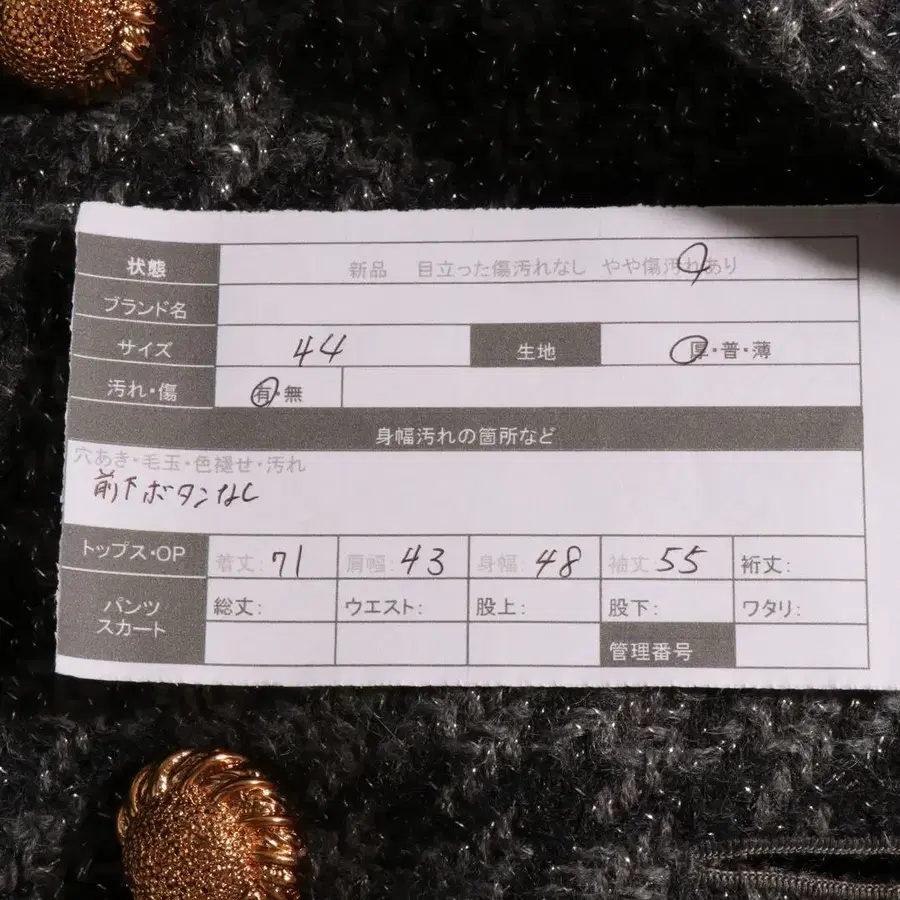 状態 新品 目立った傷汚れなし やや傷汚れあり
ブランド名
サイズ 44 生地 厚・普・薄
汚れ・傷 有・無
身幅汚れの箇所など
穴あき・毛玉・色褪せ・汚れ
前下ボタンなし
トップス・OP 着丈: 71 肩幅: 43 身幅: 48 袖丈: 55 裄丈:
パンツ 総丈: ウエスト: 股上: 股下: ワタリ:
スカート
管理番号